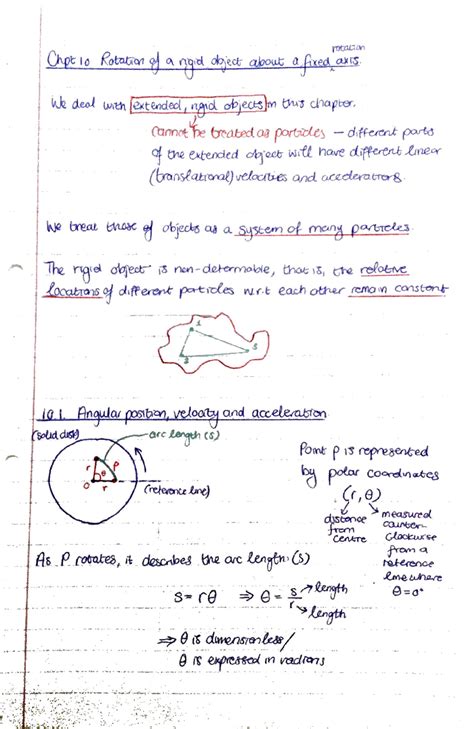 Chpt 10 Rotation of a rigid object about a fixed rotation axis.
We deal with extended, rigid objects in this chapter.
Cannot be treated as particles – different parts
of the extended object will have different linear
(translational) velocities and accelerations.
We treat those of objects as a system of many particles.
The rigid object is non-deformable, that is, the relative
locations of different particles w.r.t each other remain constant
1
2
3
10.1. Angular position, velocity and acceleration
(solid disk)
arc length (s)
r
θ
P
O
r
(reference line)
Point P is represented
by polar coordinates
(r, θ)
distance
from
centre
measured
counter-
clockwise
from a
reference
line where
θ=0°
As P rotates, it describes the arc length: (s)
s = rθ ⇒ θ = s/r → length
→ length
⇒ θ is dimensionless/
θ is expressed in radians